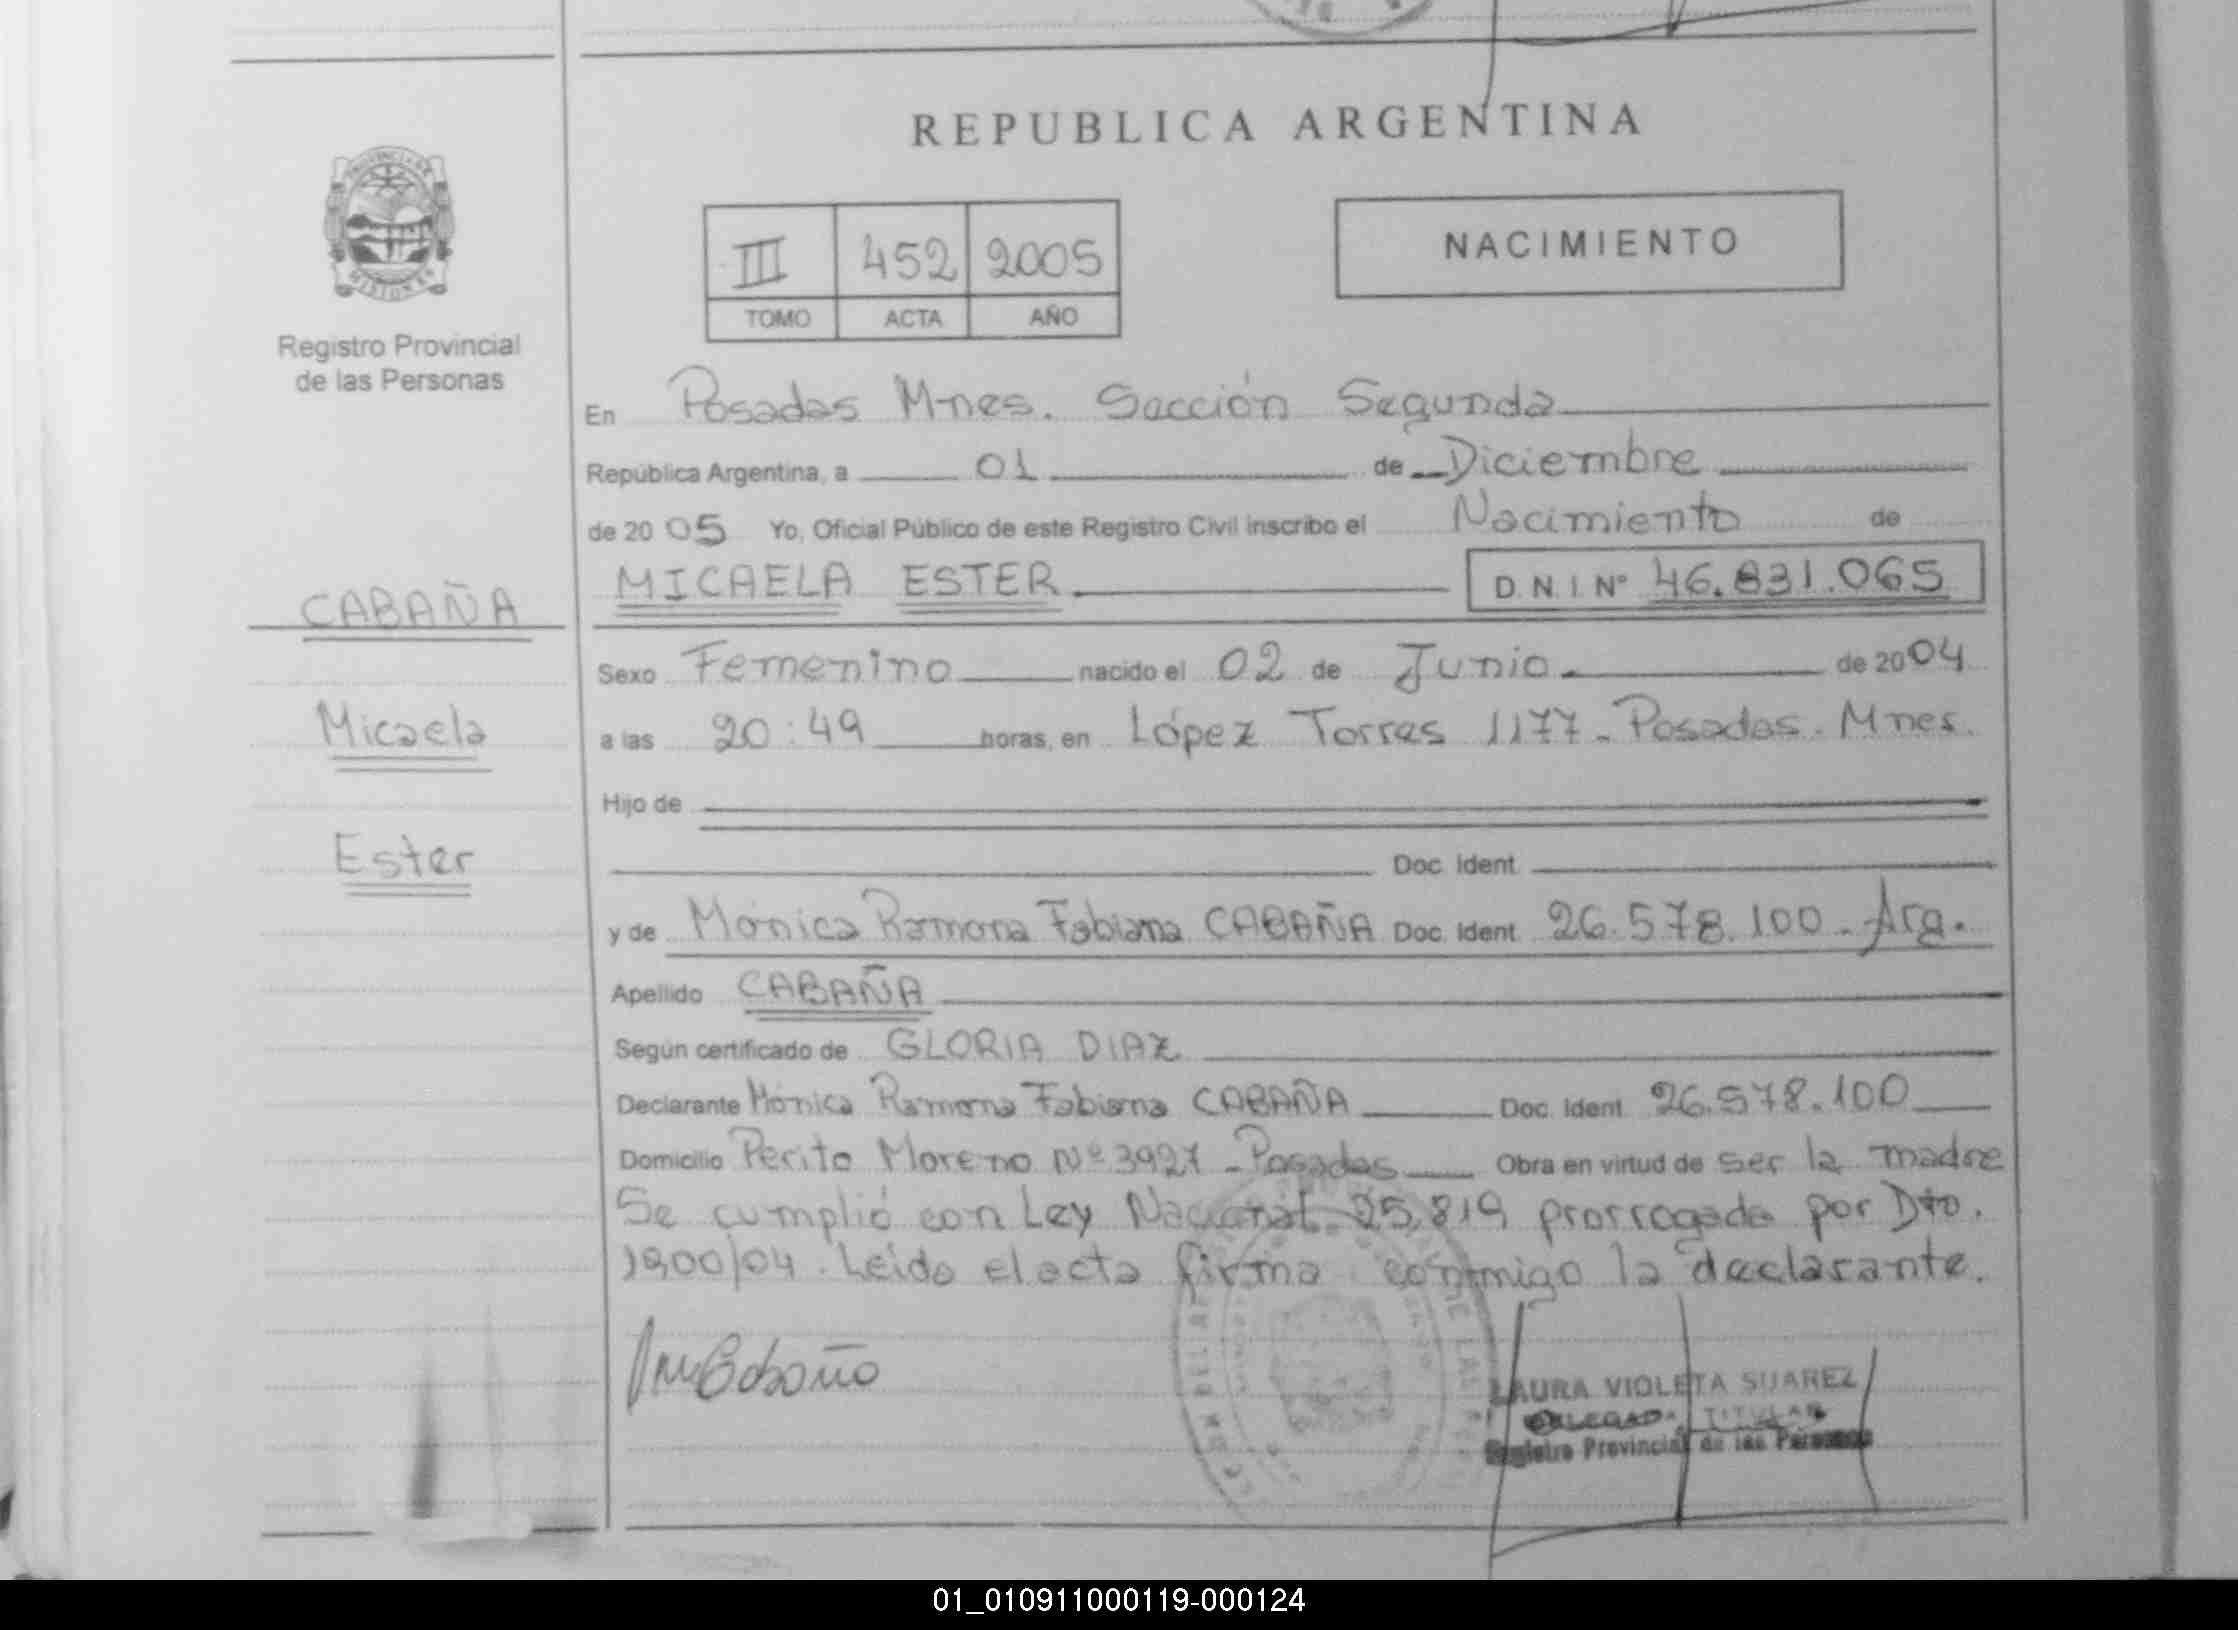 REPUBLICA ARGENTINA
PROVINCIA DE
MISIONES
Registro Provincial
de las Personas
III 452 2005
TOMO ACTA AÑO
NACIMIENTO
En Posadas Mnes. Sección Segunda
República Argentina, a 01 de Diciembre
de 2005 Yo, Oficial Público de este Registro Civil inscribo el Nacimiento de
MICAELA ESTER D.N.I. Nº 46.831.065
CABAÑA
Micaela
Ester
Sexo Femenino nacido el 02 de Junio de 2004
a las 20:49 horas, en López Torres 1177 - Posadas. Mnes.
Hijo de
Doc. Ident.
y de Mónica Ramona Fabiana CABAÑA Doc. Ident. 26.578.100 - Arg.
Apellido CABAÑA
Según certificado de GLORIA DIAZ
Declarante Mónica Ramona Fabiana CABAÑA Doc. Ident. 26.578.100
Domicilio Perito Moreno Nº 3927 - Posadas Obra en virtud de ser la madre
Se cumplió con Ley Nacional 25.819 prorrogada por Dto.
1900/04. Leído el acta firma conmigo la declarante.
LAURA VIOLETA SUAREZ
DELEGADA TITULAR
Registro Provincial de las Personas
01_010911000119-000124